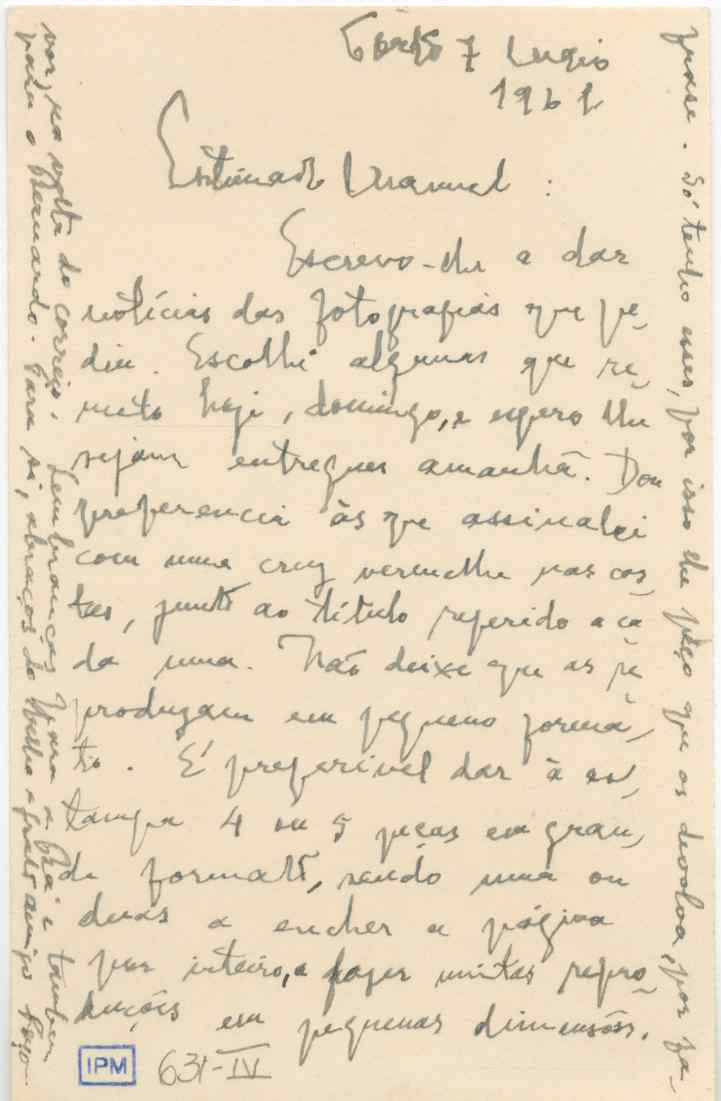 7
1961
Estimado Manuel :
Escrevo-lhe a dar
notícias das fotografias que pe-
diu. Escolhi algumas que re-
meto hoje, domingo, e espero lhe
sejam entregues amanhã. Dou
preferencia às que assinalei
com uma cruz vermelha nas cos-
tas, junto ao título referido a ca-
da uma. Não deixe que as re-
produzam em pequeno forma-
to. É preferível dar à es-
tampa 4 ou 5 peças em gran-
de formato, sendo uma ou
duas a encher a página
por inteiro, a fazer muitas repro-
duções em pequenas dimensões.
frase. Só tenho esses, por isso lhe peço que os devolva, por fa-
vor, na volta do correio. Lembranças para a e tambem
para o Bernardo. Para si, abraços do velho e grato amigo
IPM 631-IV